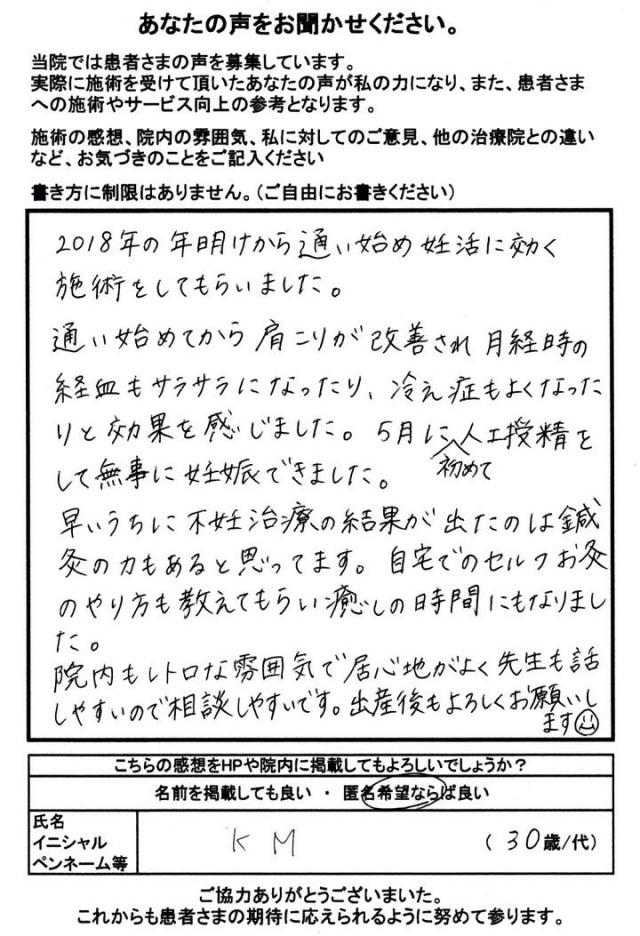 あなたの声をお聞かせください。
当院では患者さまの声を募集しています。
実際に施術を受けて頂いたあなたの声が私の力になり、また、患者さま
への施術やサービス向上の参考となります。
施術の感想、院内の雰囲気、私に対してのご意見、他の治療院との違い
など、お気づきのことをご記入ください
書き方に制限はありません。（ご自由にお書きください）
2018年の年明けから通い始め妊活に効く
施術をしてもらいました。
通い始めてから肩こりが改善され月経時の
経血もサラサラになったり、冷え症もよくなった
りと効果を感じました。5月に初めて人工授精を
して無事に妊娠できました。
早いうちに不妊治療の結果が出たのは鍼
灸の力もあると思ってます。自宅でのセルフお灸
のやり方も教えてもらい癒しの時間にもなりまし
た。
院内もレトロな雰囲気で居心地がよく先生も話
しやすいので相談しやすいです。出産後もよろしくお願いし
ます
こちらの感想をHPや院内に掲載してもよろしいでしょうか？
名前を掲載しても良い ・ 匿名希望ならば良い
氏名
イニシャル
ペンネーム等
KM
（ 30歳/代）
ご協力ありがとうございまいた。
これからも患者さまの期待に応えられるように努めて参ります。